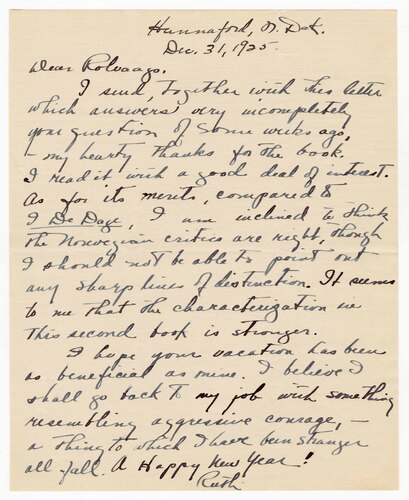 Hannaford, N. Dak.
Dec. 31, 1925.
Dear Rolvaags.
I send, together with this letter
which answers very incompletely
your question of some weeks ago,
– my hearty thanks for the book.
I read it with a good deal of interest.
As for its merits, compared to
I De Dage, I am inclined to think
the Norwegian critics are right, though
I should not be able to point out
any sharp lines of distinction. It seems
to me that the characterization in
this second book is stronger.
I hope your vacation has been
as beneficial as mine. I believe I
shall go back to my job with something
resembling aggressive courage, –
a thing to which I have been stranger
all fall. A Happy New Year!
Ruth